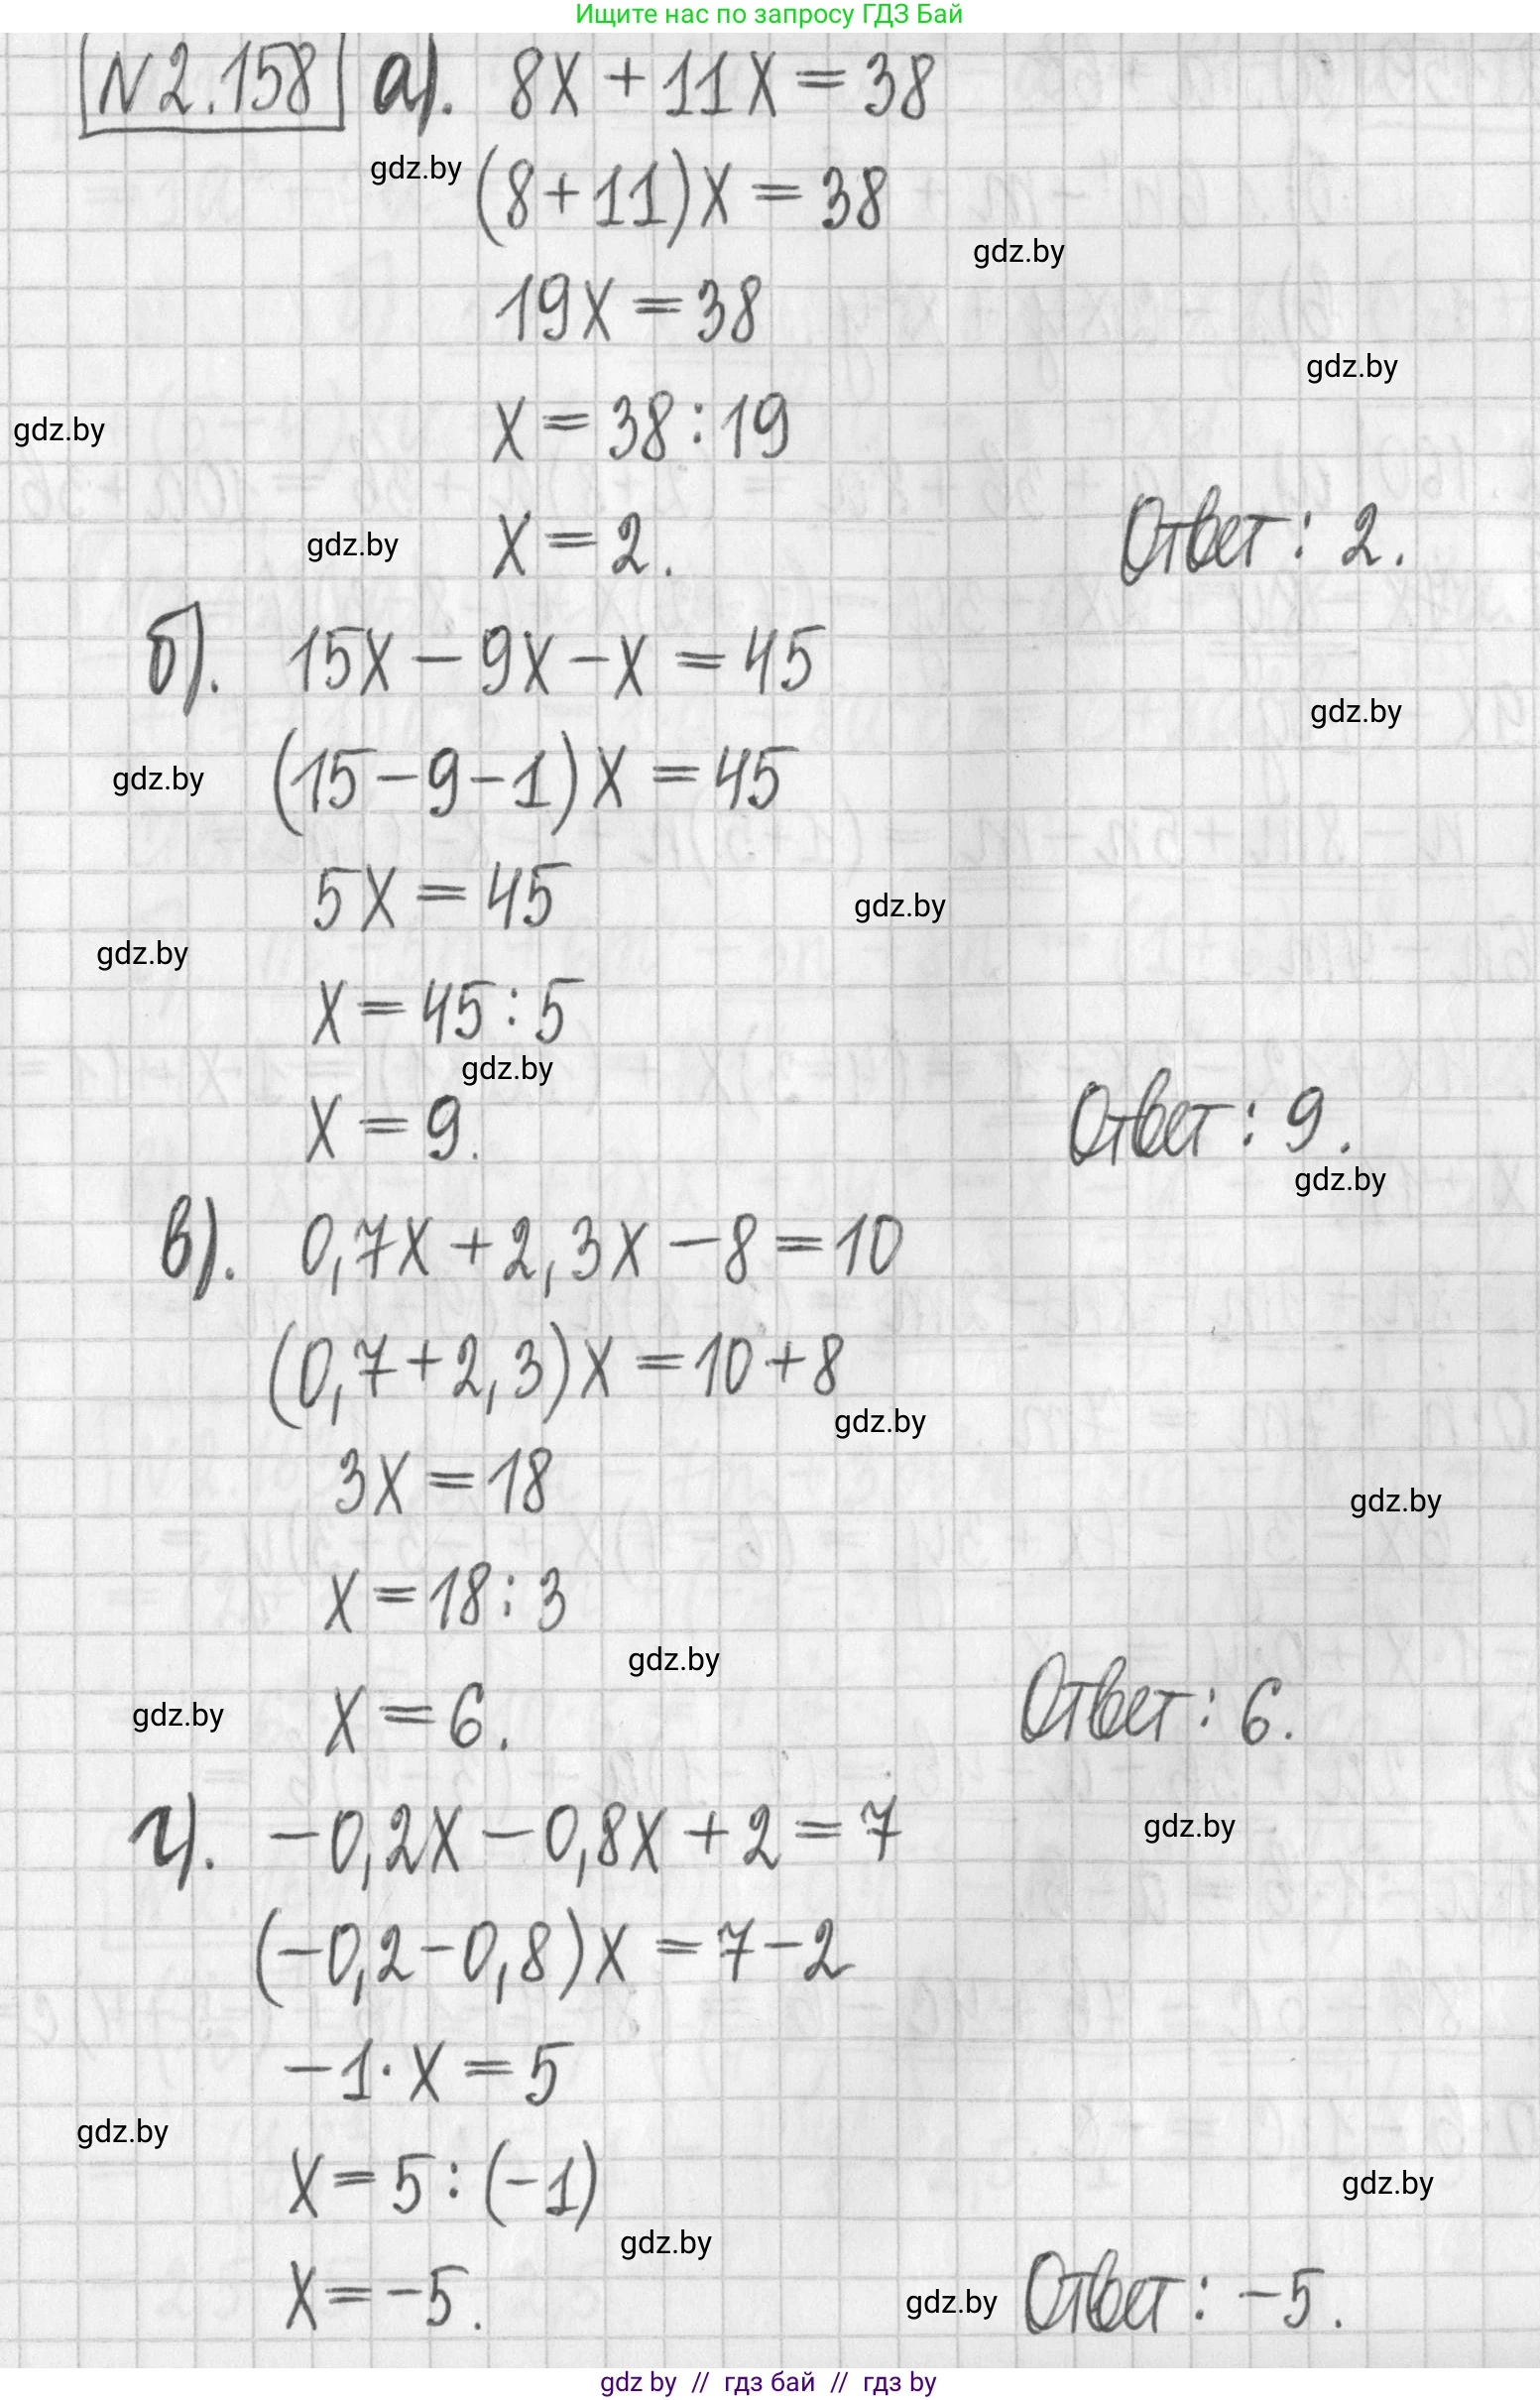 Ищите нас по запросу ГДЗ Бай
N2.158 а). 8x + 11x = 38
gdz.by
(8+11)x = 38
gdz.by
19x = 38
gdz.by
x = 38 : 19
gdz.by
x = 2.
gdz.by
Ответ: 2.
б). 15x - 9x - x = 45
gdz.by
(15-9-1)x = 45
gdz.by
5x = 45
gdz.by
gdz.by
x = 45 : 5
gdz.by
x = 9.
Ответ: 9.
gdz.by
в). 0,7x + 2,3x - 8 = 10
(0,7+2,3)x = 10+8
gdz.by
3x = 18
gdz.by
x = 18 : 3
gdz.by
x = 6.
gdz.by
Ответ: 6.
г). -0,2x - 0,8x + 2 = 7
gdz.by
(-0,2-0,8)x = 7-2
-1·x = 5
gdz.by
x = 5 : (-1)
gdz.by
gdz.by
x = -5.
gdz.by
Ответ: -5.
gdz by // гдз бай // гдз by